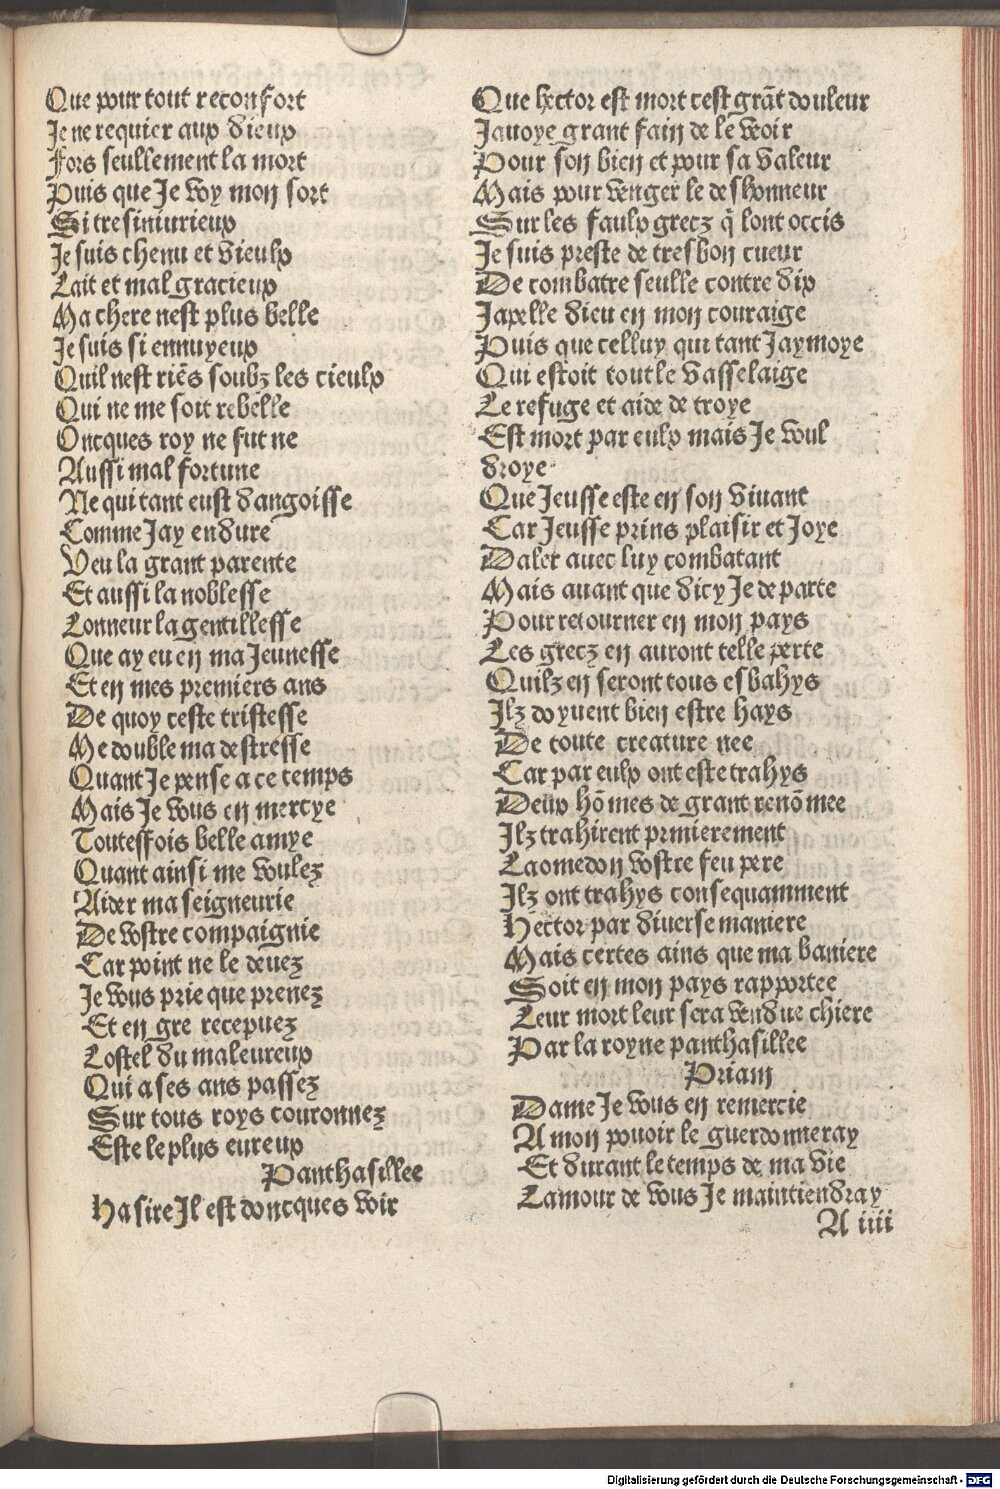 Que pour tout reconfort
Je ne requier aux dieux
Fors seullement la mort
Puis que Je voy mon sort
Si tresiniurieux
Je suis chenu et vieulx
Lait et mal gracieux
Ma chere nest plus belle
Je suis si ennuyeux
Quil nest riẽs soubz les cieulx
Qui ne me soit rebelle
Oncques roy ne fut ne
Aussi mal fortune
Ne qui tant eust dangoisse
Comme Jay endure
Veu la grant parente
Et aussi la noblesse
Lonneur la gentillesse
Que ay eu en ma Jeunesse
Et en mes premiers ans
De quoy ceste tristesse
Me double ma destresse
Quant Je pense a ce temps
Mais Je vous en mercye
Touteffois belle amye
Quant ainsi me voulez
Aider ma seigneurie
De vostre compaignie
Car point ne le deuez
Je vous prie que prenez
Et en gre recepuez
Lostel du maleureux
Qui a ses ans passez
Sur tous roys couronnez
Este le plus eureux
Panthasillee
Ha sire Il est doncques voir
Que hector est mort cest grãt douleur
Jauoye grant fain de le veoir
Pour son bien et pour sa valeur
Mais pour venger le deshonneur
Sur les faulx grecz q̃ lont occis
Je suis preste de tresbon cueur
De combatre seulle contre dix
Japelle dieu en mon couraige
Puis que celluy qui tant Jaymoye
Qui estoit tout le vasselaige
Le refuge et aide de troye
Est mort par eulx mais Je voul
droye
Que Jeusse este en son viuant
Car Jeusse prins plaisir et Joye
Daler auec luy combatant
Mais auant que dicy Je departe
Pour retourner en mon pays
Les grecz en auront telle perte
Quilz en seront tous esbahys
Ilz doyuent bien estre hays
De toute creature nee
Car par eulx ont este trahys
Deux hõmes de grant renõmee
Ilz trahirent prmierement
Laomedon vostre feu pere
Ilz ont trahys consequamment
Hector par diuerse maniere
Mais certes ains que ma baniere
Soit en mon pays rapportee
Leur mort leur sera vendue chiere
Par la royne panthasillee
Priam
Dame Je vous en remercie
A mon pouoir le guerdonneray
Et durant le temps de ma vie
Lamour de vous Je maintiendray
A iiii
Digitalisierung gefördert durch die Deutsche Forschungsgemeinschaft - DFG